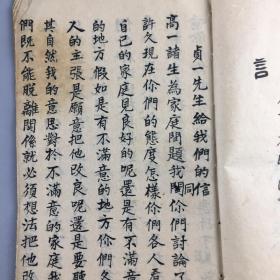 言
貞一先生給我們的信
高一諸生為家庭問題我同你們討論了
許久現在你們的態度怎樣你們各人看
自己的家庭見良好的呢還是有不滿意
的地方假如是有不滿意的地方你們久
大的主張是願意把他改良呢還是要聽
其自然我的意思對於不滿意的家庭我
們既不能脫離關係就必須想法把他改